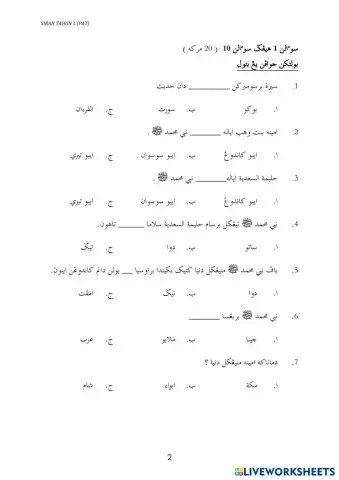 SIRAH TAHUN 1 (PAT)
سوءالن 1 هيڠݢ سوءالن 10 ( 20 مركه )
بولتكن جواڤن يڠ بتول
1. سيرة برسومبركن __________ دان حديث
ا. بوكو ب. سورت ج. القرءان
2. امينه بنت وهب اياله ________ نبي محمد ﷺ ..
ا. ايبو كاندوڠ ب. ايبو سوسوان ج. ايبو تيري
3. حليمة السعدية اياله________ نبي محمد ﷺ .
ا. ايبو كاندوڠ ب. ايبو سوسوان ج. ايبو تيري
4. نبي محمد ﷺ تيڠݢل برسام حليمة السعدية سلاما _______ تاهون.
ا. ساتو ب. دوا ج. تيݢ
5. باڤ نبي محمد ﷺ منيڠݢل دنيا كتيک بݢيندا براوسيا ___ بولن دالم كاندوڠن ايبوڽ.
ا. دوا ب. تيݢ ج. امڤت
6. نبي محمد ﷺ بربڠسا ________
ا. چينا ب. ملايو ج. عرب
7. دماناكه امينه منيڠݢل دنيا ؟
ا. مكة ب. ابواء ج. شام
2
LIVEWORKSHEETS